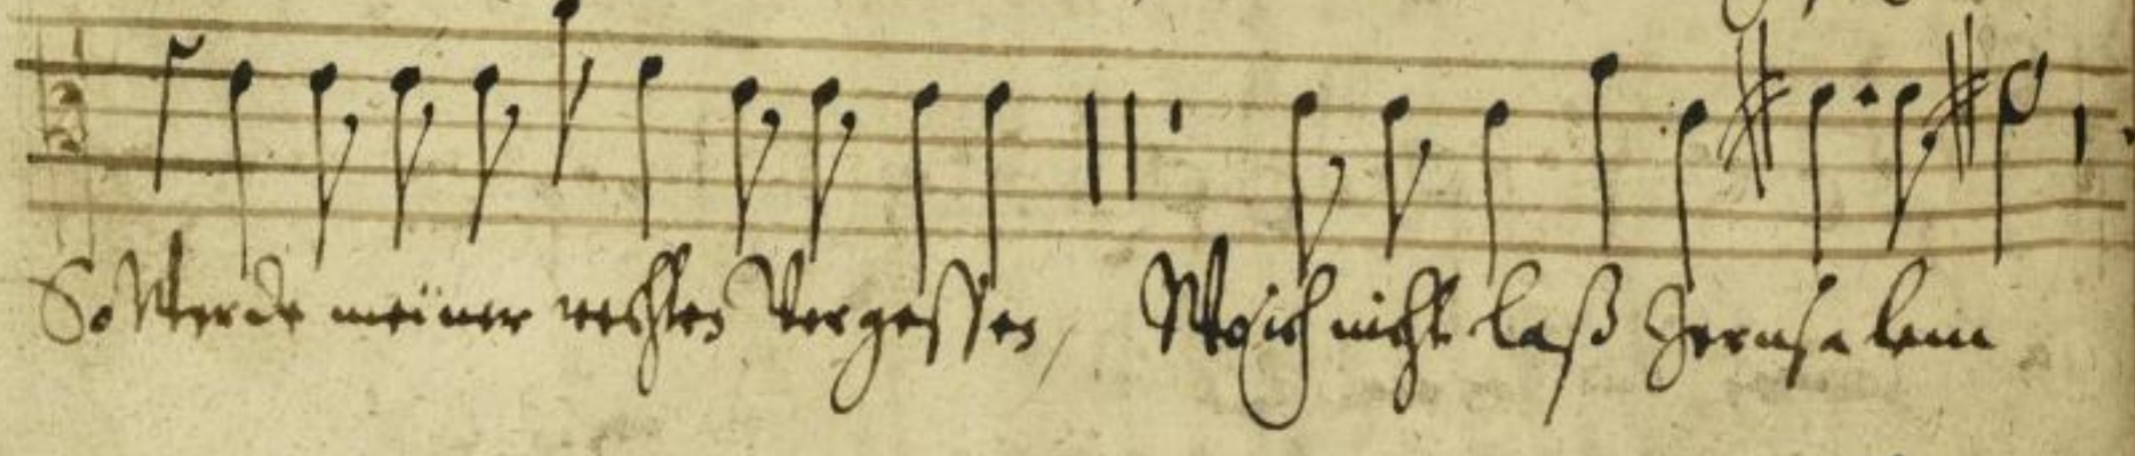 So Werde meiner rechten Vergessen / Wo ich nicht laß Jerusalem